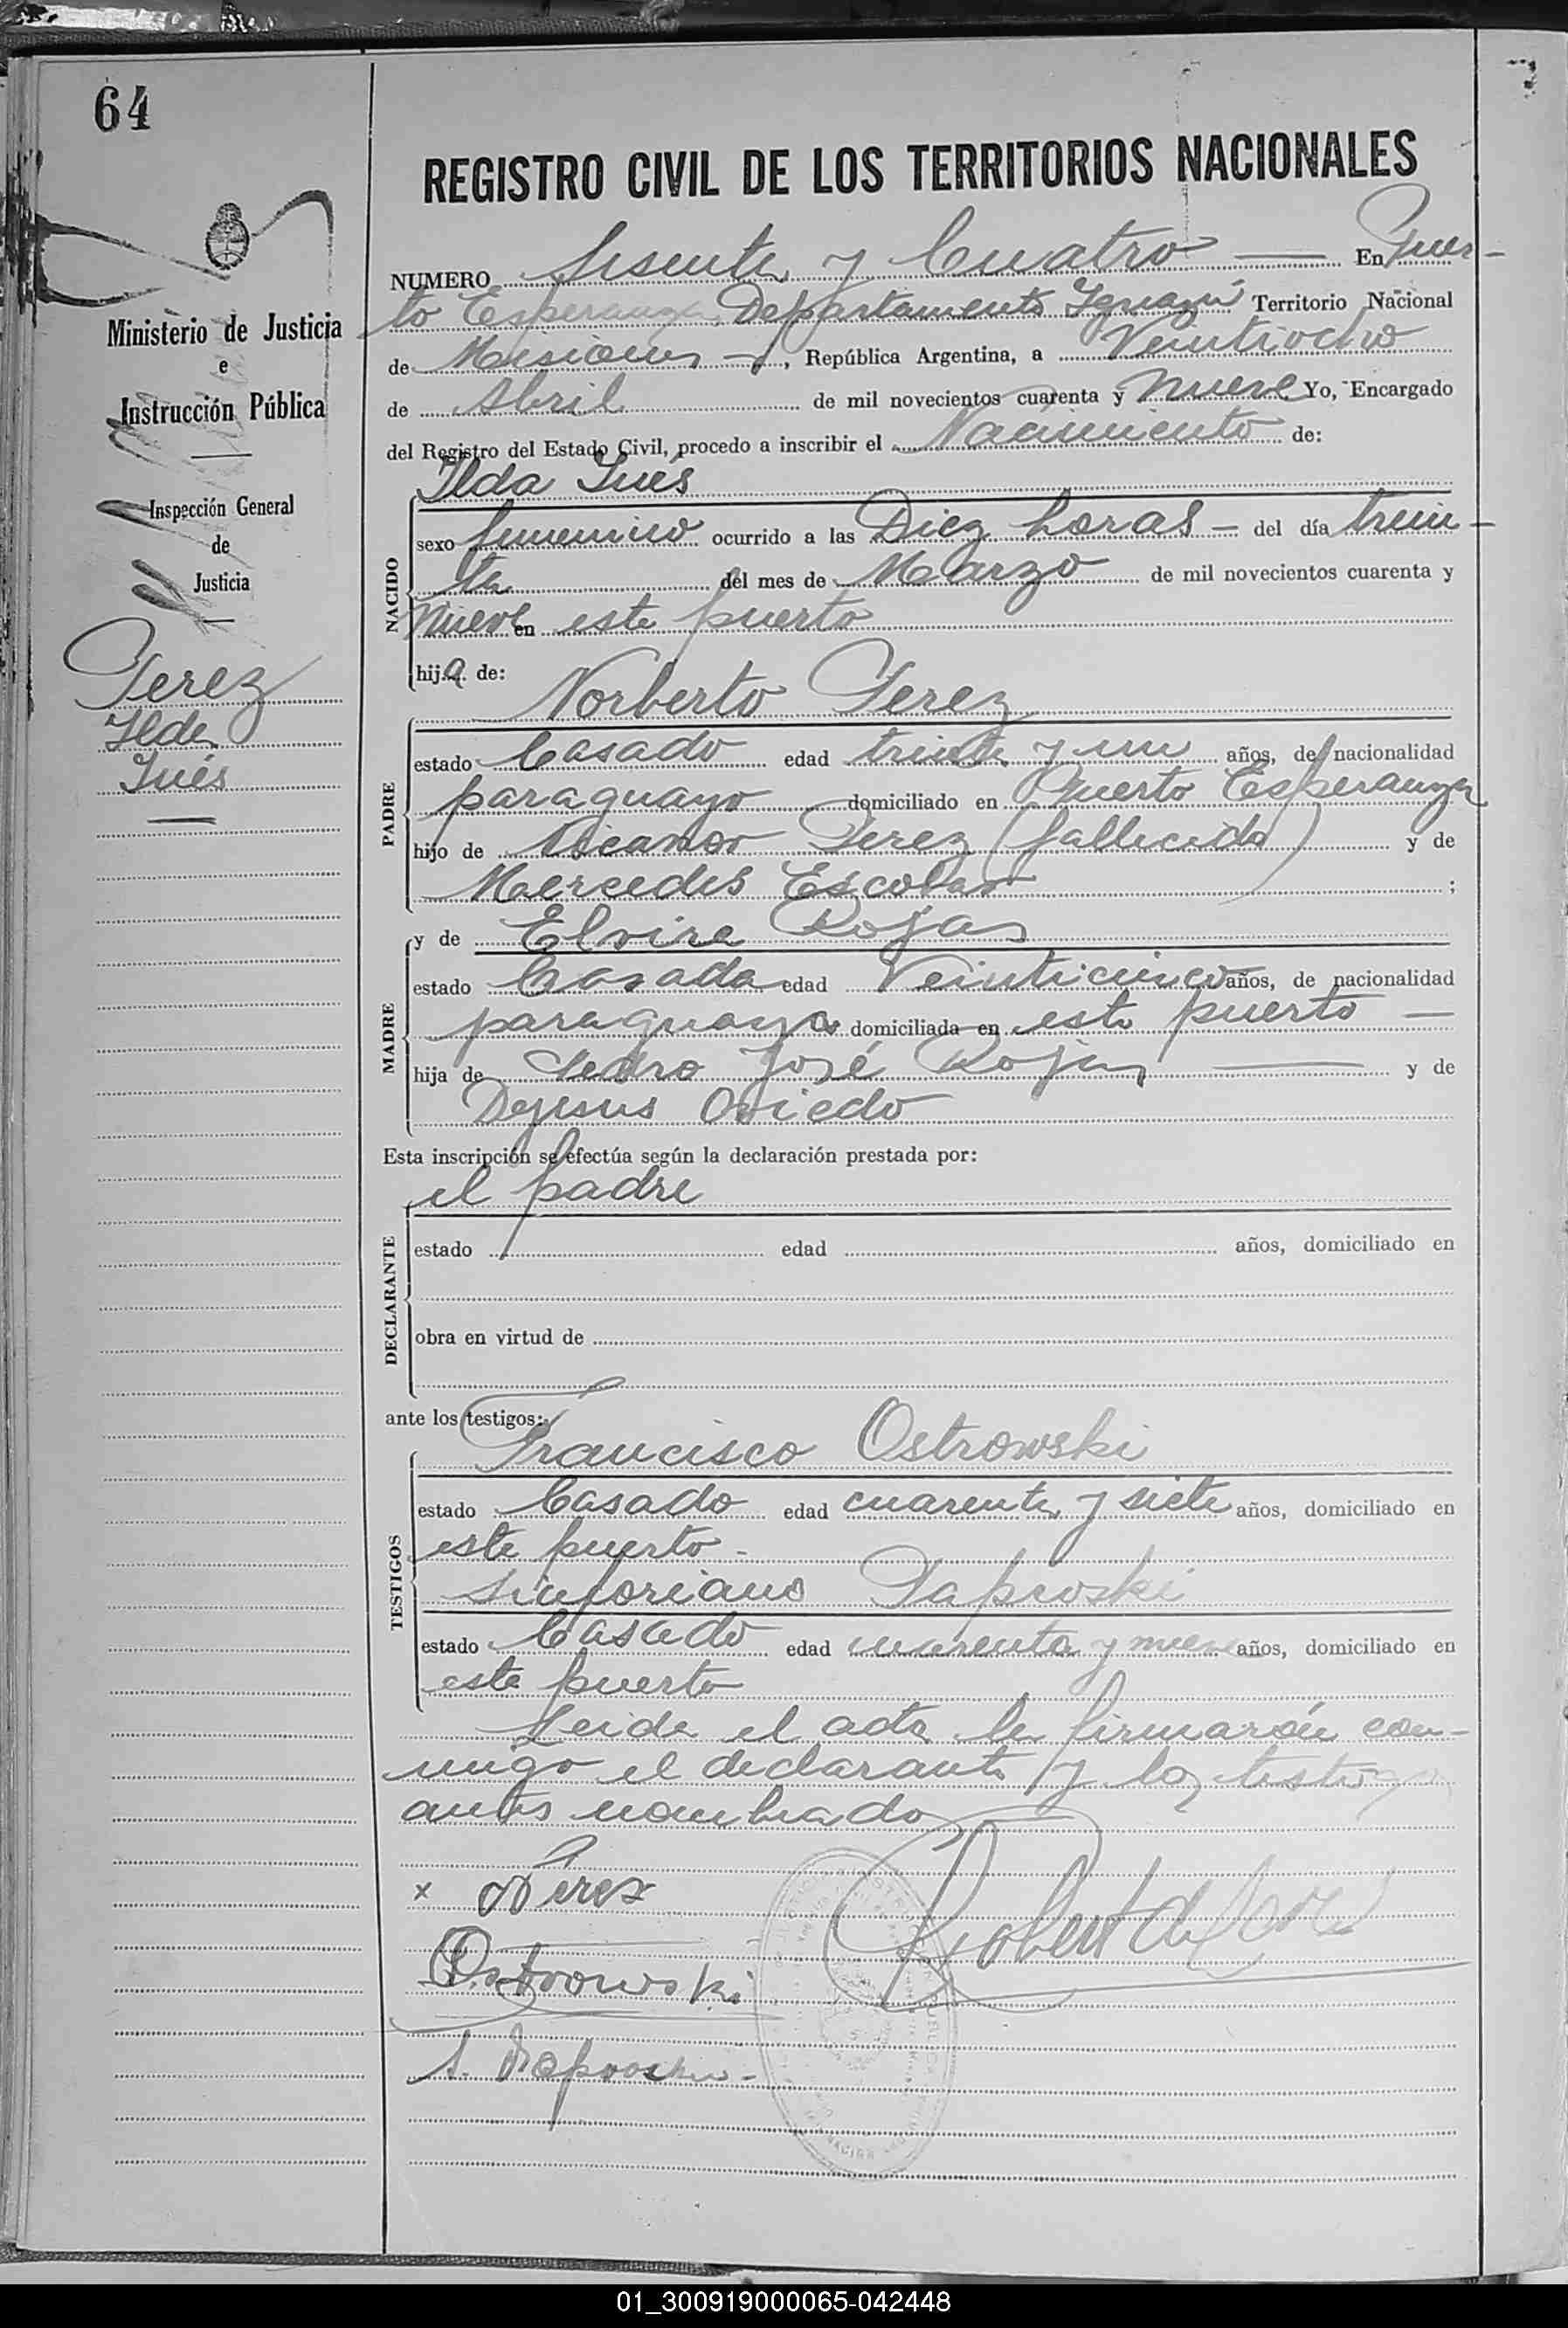 64
REGISTRO CIVIL DE LOS TERRITORIOS NACIONALES
NUMERO Sesenta y Cuatro En Puer-
to Esperanza, Departamento Iguazú Territorio Nacional
de Misiones, República Argentina, a Veintiocho
de Abril de mil novecientos cuarenta y nueve Yo, Encargado
del Registro del Estado Civil, procedo a inscribir el Nacimiento de:
Ilda Inés
NACIDO
sexo femenino ocurrido a las Diez horas - del día trein-
ta del mes de Marzo de mil novecientos cuarenta y
nueve en este puerto
hija de:
Norberto Perez
PADRE
estado Casado edad treinta y un años, de nacionalidad
paraguayo domiciliado en Puerto Esperanza
hijo de Nicanor Perez (fallecido) y de
Mercedes Escobar ;
y de Elvira Rojas
MADRE
estado Casada edad Veinticinco años, de nacionalidad
paraguaya domiciliada en este puerto
hija de Pedro José Rojas y de
Dejesus Oviedo
Esta inscripción se efectúa según la declaración prestada por:
el padre
DECLARANTE
estado edad años, domiciliado en
obra en virtud de
ante los testigos:
Francisco Ostrowski
TESTIGOS
estado Casado edad cuarenta y siete años, domiciliado en
este puerto -
Sinforiano
estado Casado edad cuarenta y nueve años, domiciliado en
este puerto
Leida el acta la firmarón con-
migo el declarante y los testigos
antes nombrado
x N Perez
Ostrowski
Ministerio de Justicia
e
Instrucción Pública
Inspección General
de
Justicia
Perez
Ilda
Inés
01_300919000065-042448